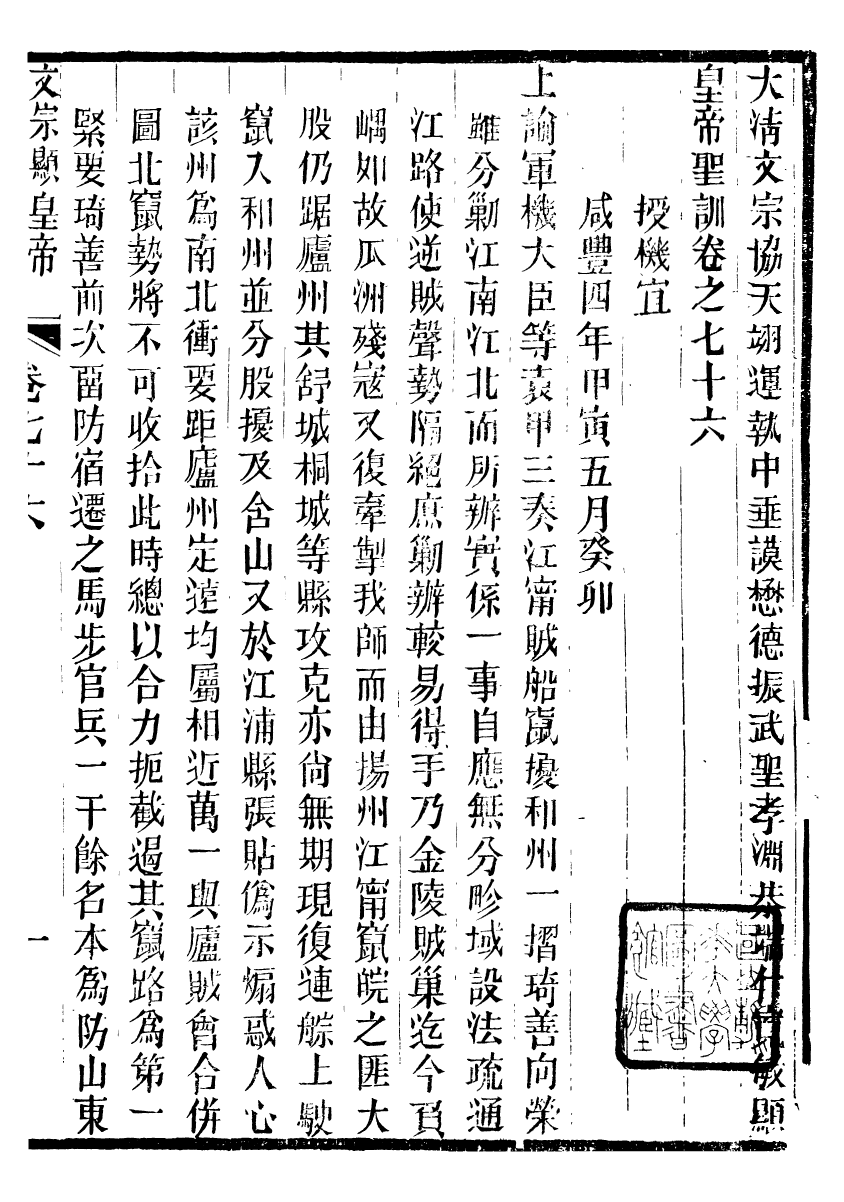 大淸文宗協天翊運執中垂謨懋德振武聖孝淵恭端仁寬敏顯
皇帝聖訓卷之七十六
授機宜
咸豐四年甲寅五月癸卯
上諭軍機大臣等袁甲三奏江甯賊船竄擾和州一摺琦善向榮
雖分勦江南江北而所辦實係一事自應無分畛域設法疏通
江路使逆賊聲勢隔絕庶勦辦較易得手乃金陵賊巢迄今負
嵎如故瓜洲殘寇又復牽掣我師而由揚州江甯竄皖之匪大
股仍踞廬州其舒城桐城等縣攻克亦尙無期現復連䑸上駛
竄入和州並分股擾及含山又於江浦縣張貼僞示煽惑人心
該州爲南北衝要距廬州定遠均屬相近萬一與廬賊會合併
圖北竄勢將不可收拾此時總以合力扼截遏其竄路爲第一
緊要琦善前次留防宿遷之馬步官兵一千餘名本爲防山東
文宗顯皇帝 卷七十六 一
大學
圖書
館藏